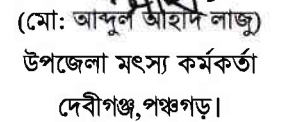 (মো: আব্দুল আহাদ লাজু)
উপজেলা মৎস্য কর্মকর্তা
দেবীগঞ্জ,পঞ্চগড়।